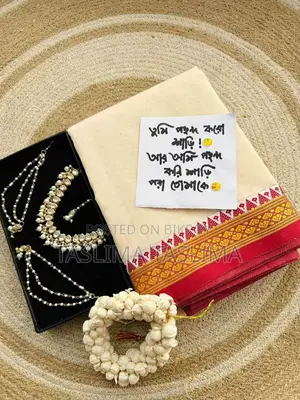 তুমি পছন্দ করো
শাড়ি!
আর আমি পছন্দ
করি শাড়ি
পরা তোমাকে
POSTED ON BIKROY
TASLIMA TASLIMA